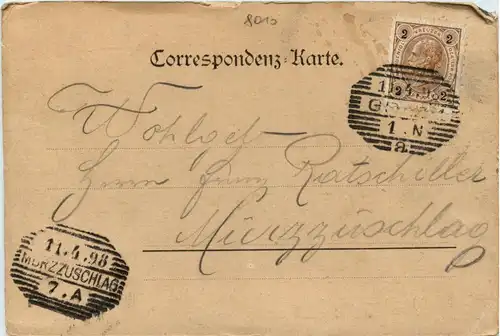 8010
Correspondenz-Karte.
2 2
11.4.98
1.N
a
Wohlgeb
Herrn Franz Ratschiller
Mürzzuschlag
11.4.98
MÜRZZUSCHLAG
7.A